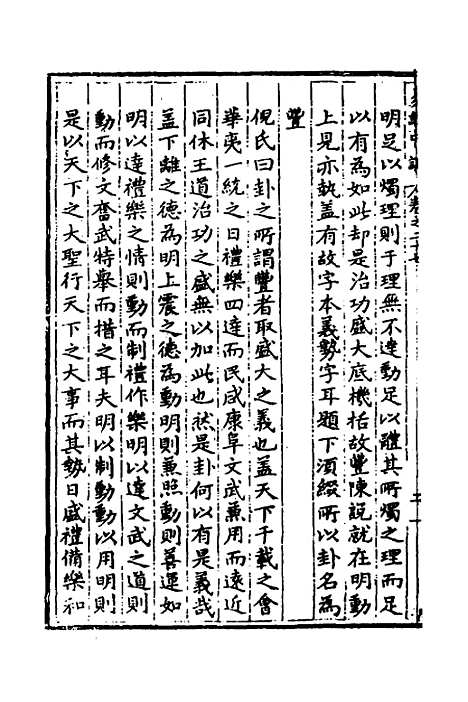 明足以燭理則于理無不達動足以體其所燭之理而足
以有為如此却是治功盛大底機括故豐陳說就在明動
上見亦執蓋有故字本義勢字耳題下須綴所以卦名為
豐
倪氏曰卦之所謂豐者取盛大之義也蓋天下千載之會
華夷一統之日禮樂四達而民咸康阜文武兼用而遠近
同休王道治功之盛無以加此也然是卦何以有是義哉
蓋下離之德為明上震之德為動明則兼照動則善運如
明以達禮樂之情則動而制禮作樂明以達文武之道則
動而修文奮武特舉而措之耳夫明以制動動以用明則
是以天下之大聖行天下之大事而其勢日盛禮備樂和